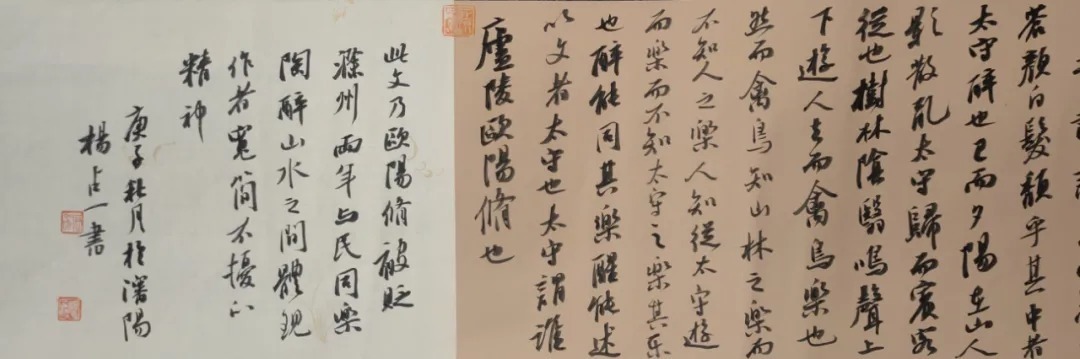 蒼顏白髮頹乎其中者
太守醉也已而夕陽在山人
影散亂太守歸而賓客
從也樹林陰翳鳴聲上
下遊人去而禽鳥樂也
然而禽鳥知山林之樂而
不知人之樂人知從太守遊
而樂而不知太守之樂其乐
也醉能同其樂醒能述
以文者太守也太守謂誰
廬陵歐陽脩也
此文乃歐陽脩被貶
滁州兩年与民同樂
陶醉山水之間體現
作者寬簡不擾的
精神
庚子秋月於瀋陽
楊占一書